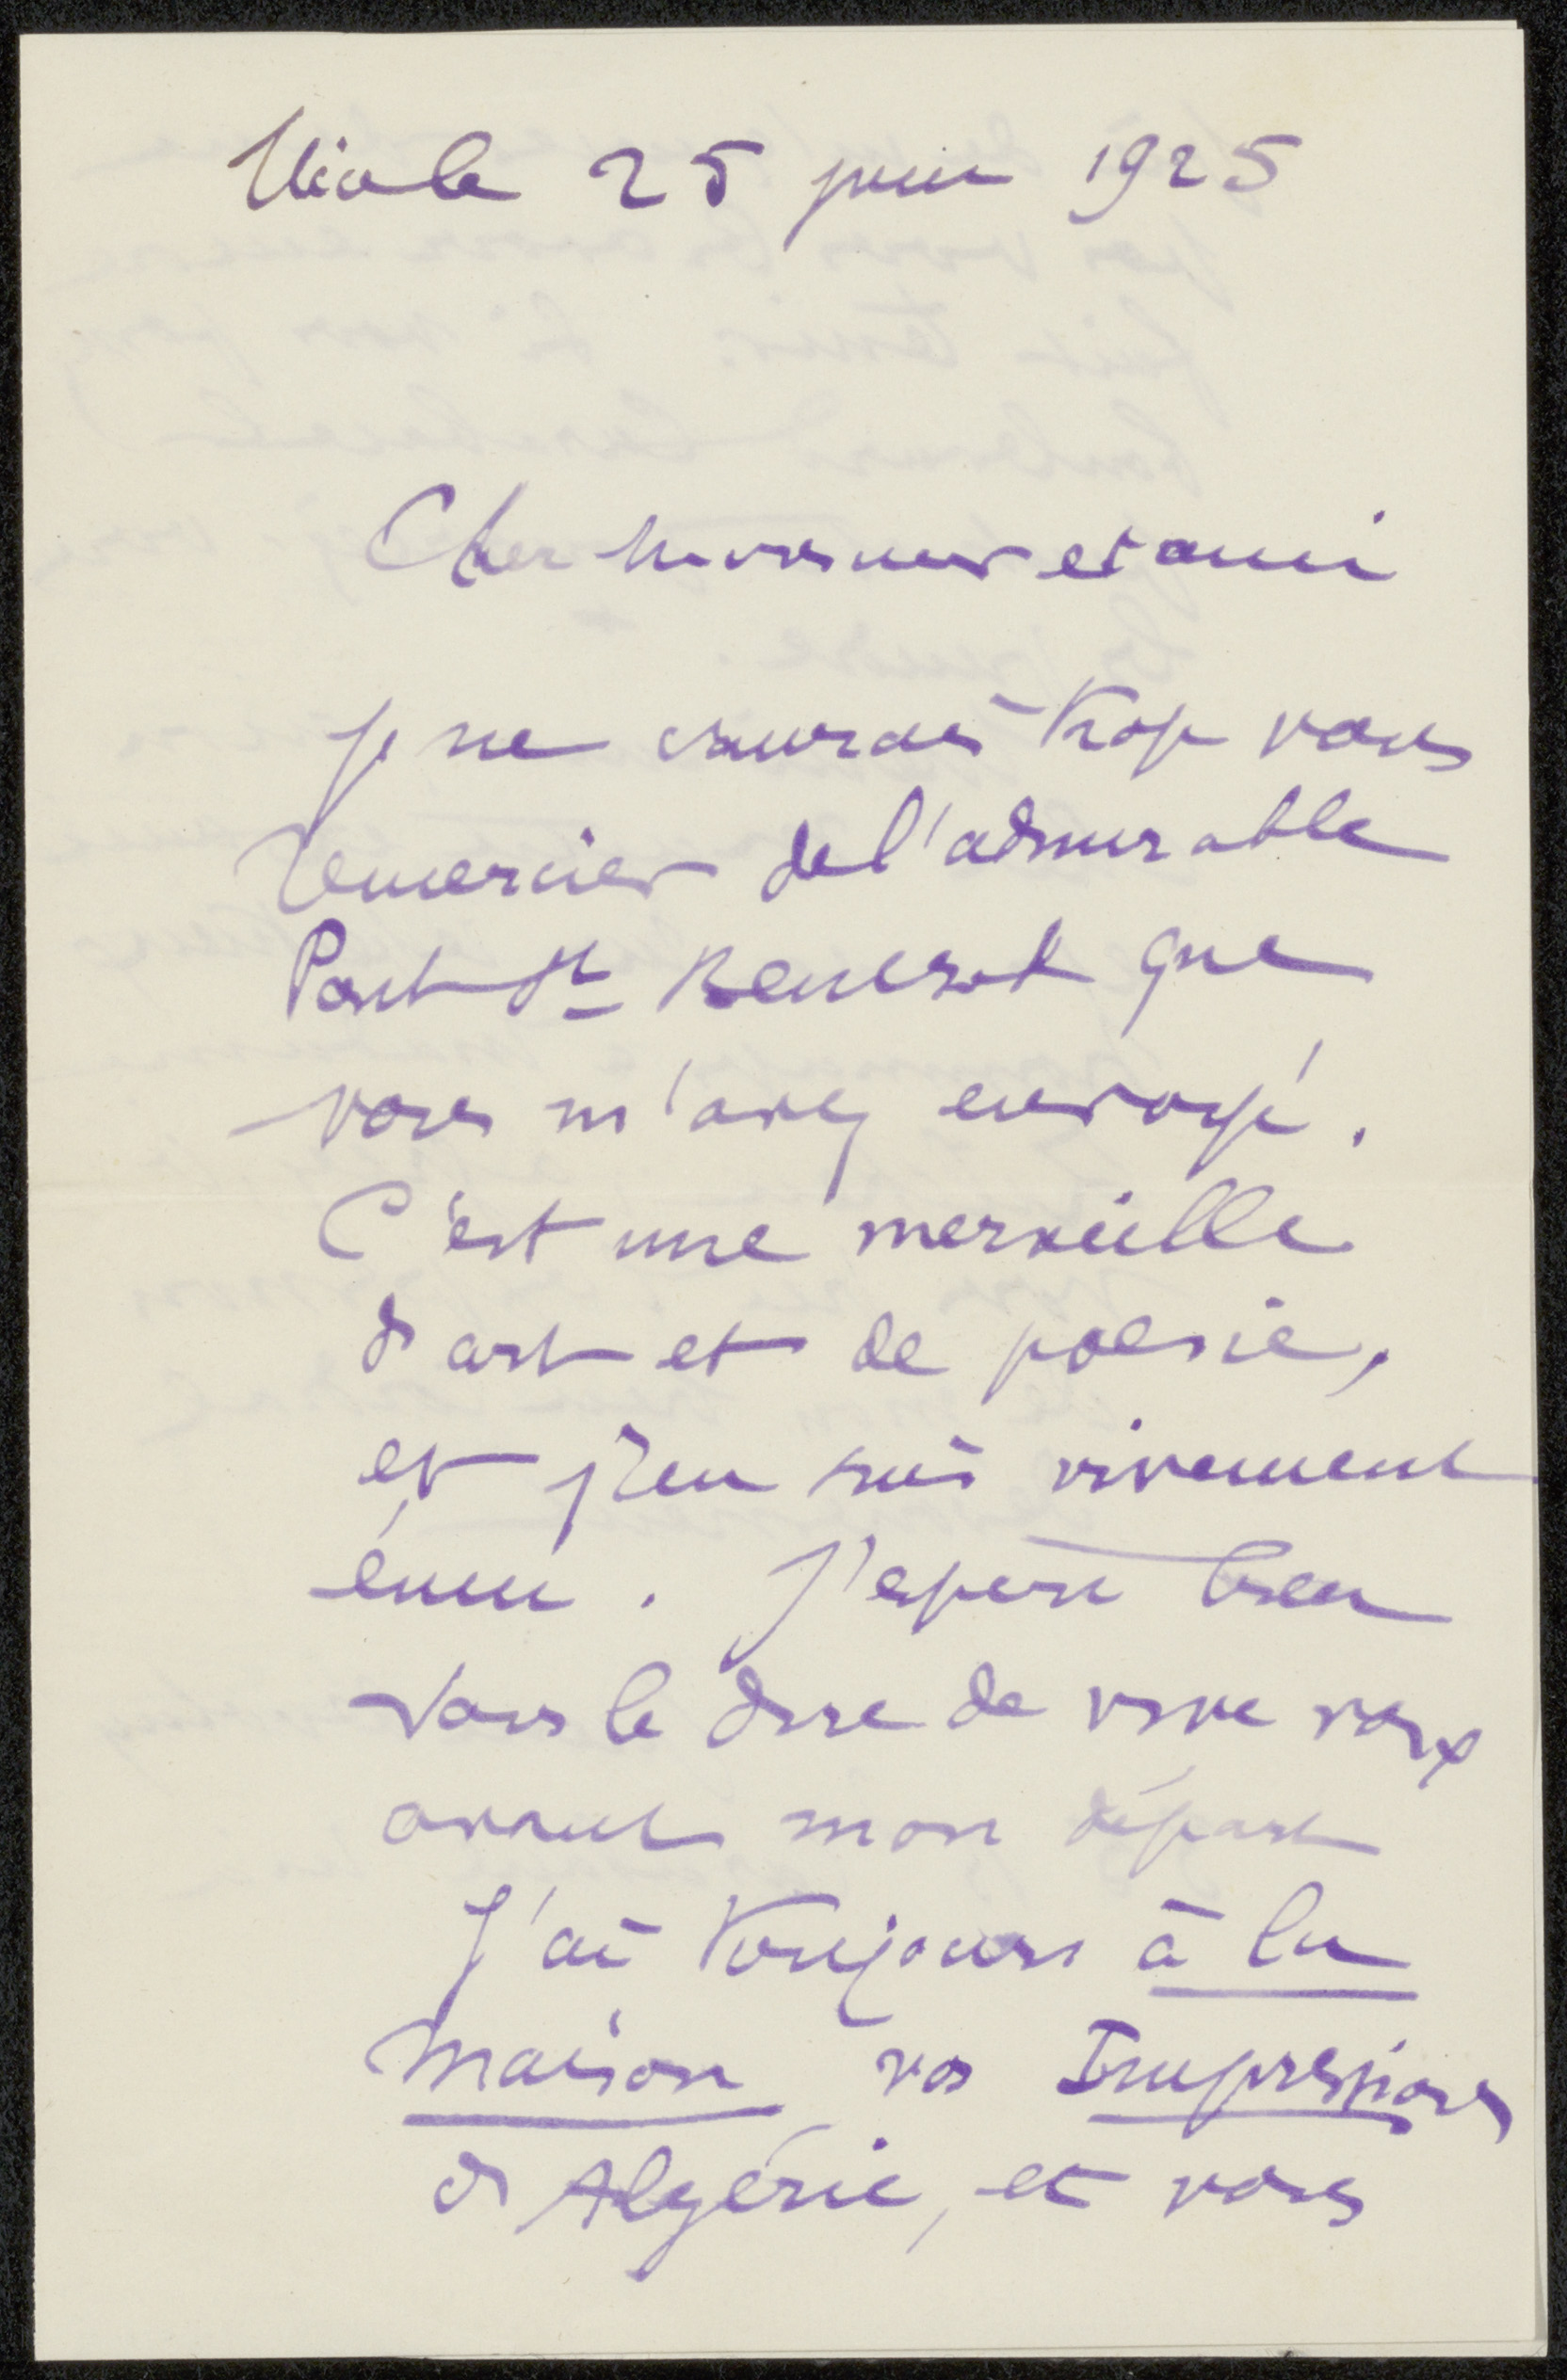 25 juin 1925
Cher monsieur et ami
Je ne saurais trop vous
remercier de l'admirable
Pont St Benezet que
vous m'avez envoyé.
C'est une merveille
d'art et de poesie,
et j'en suis vivement
ému. J'espère bien
vous le dire de vive voix
avant mon départ
J'ai toujours à la
maison vos Impressions
d'Algérie, et vous